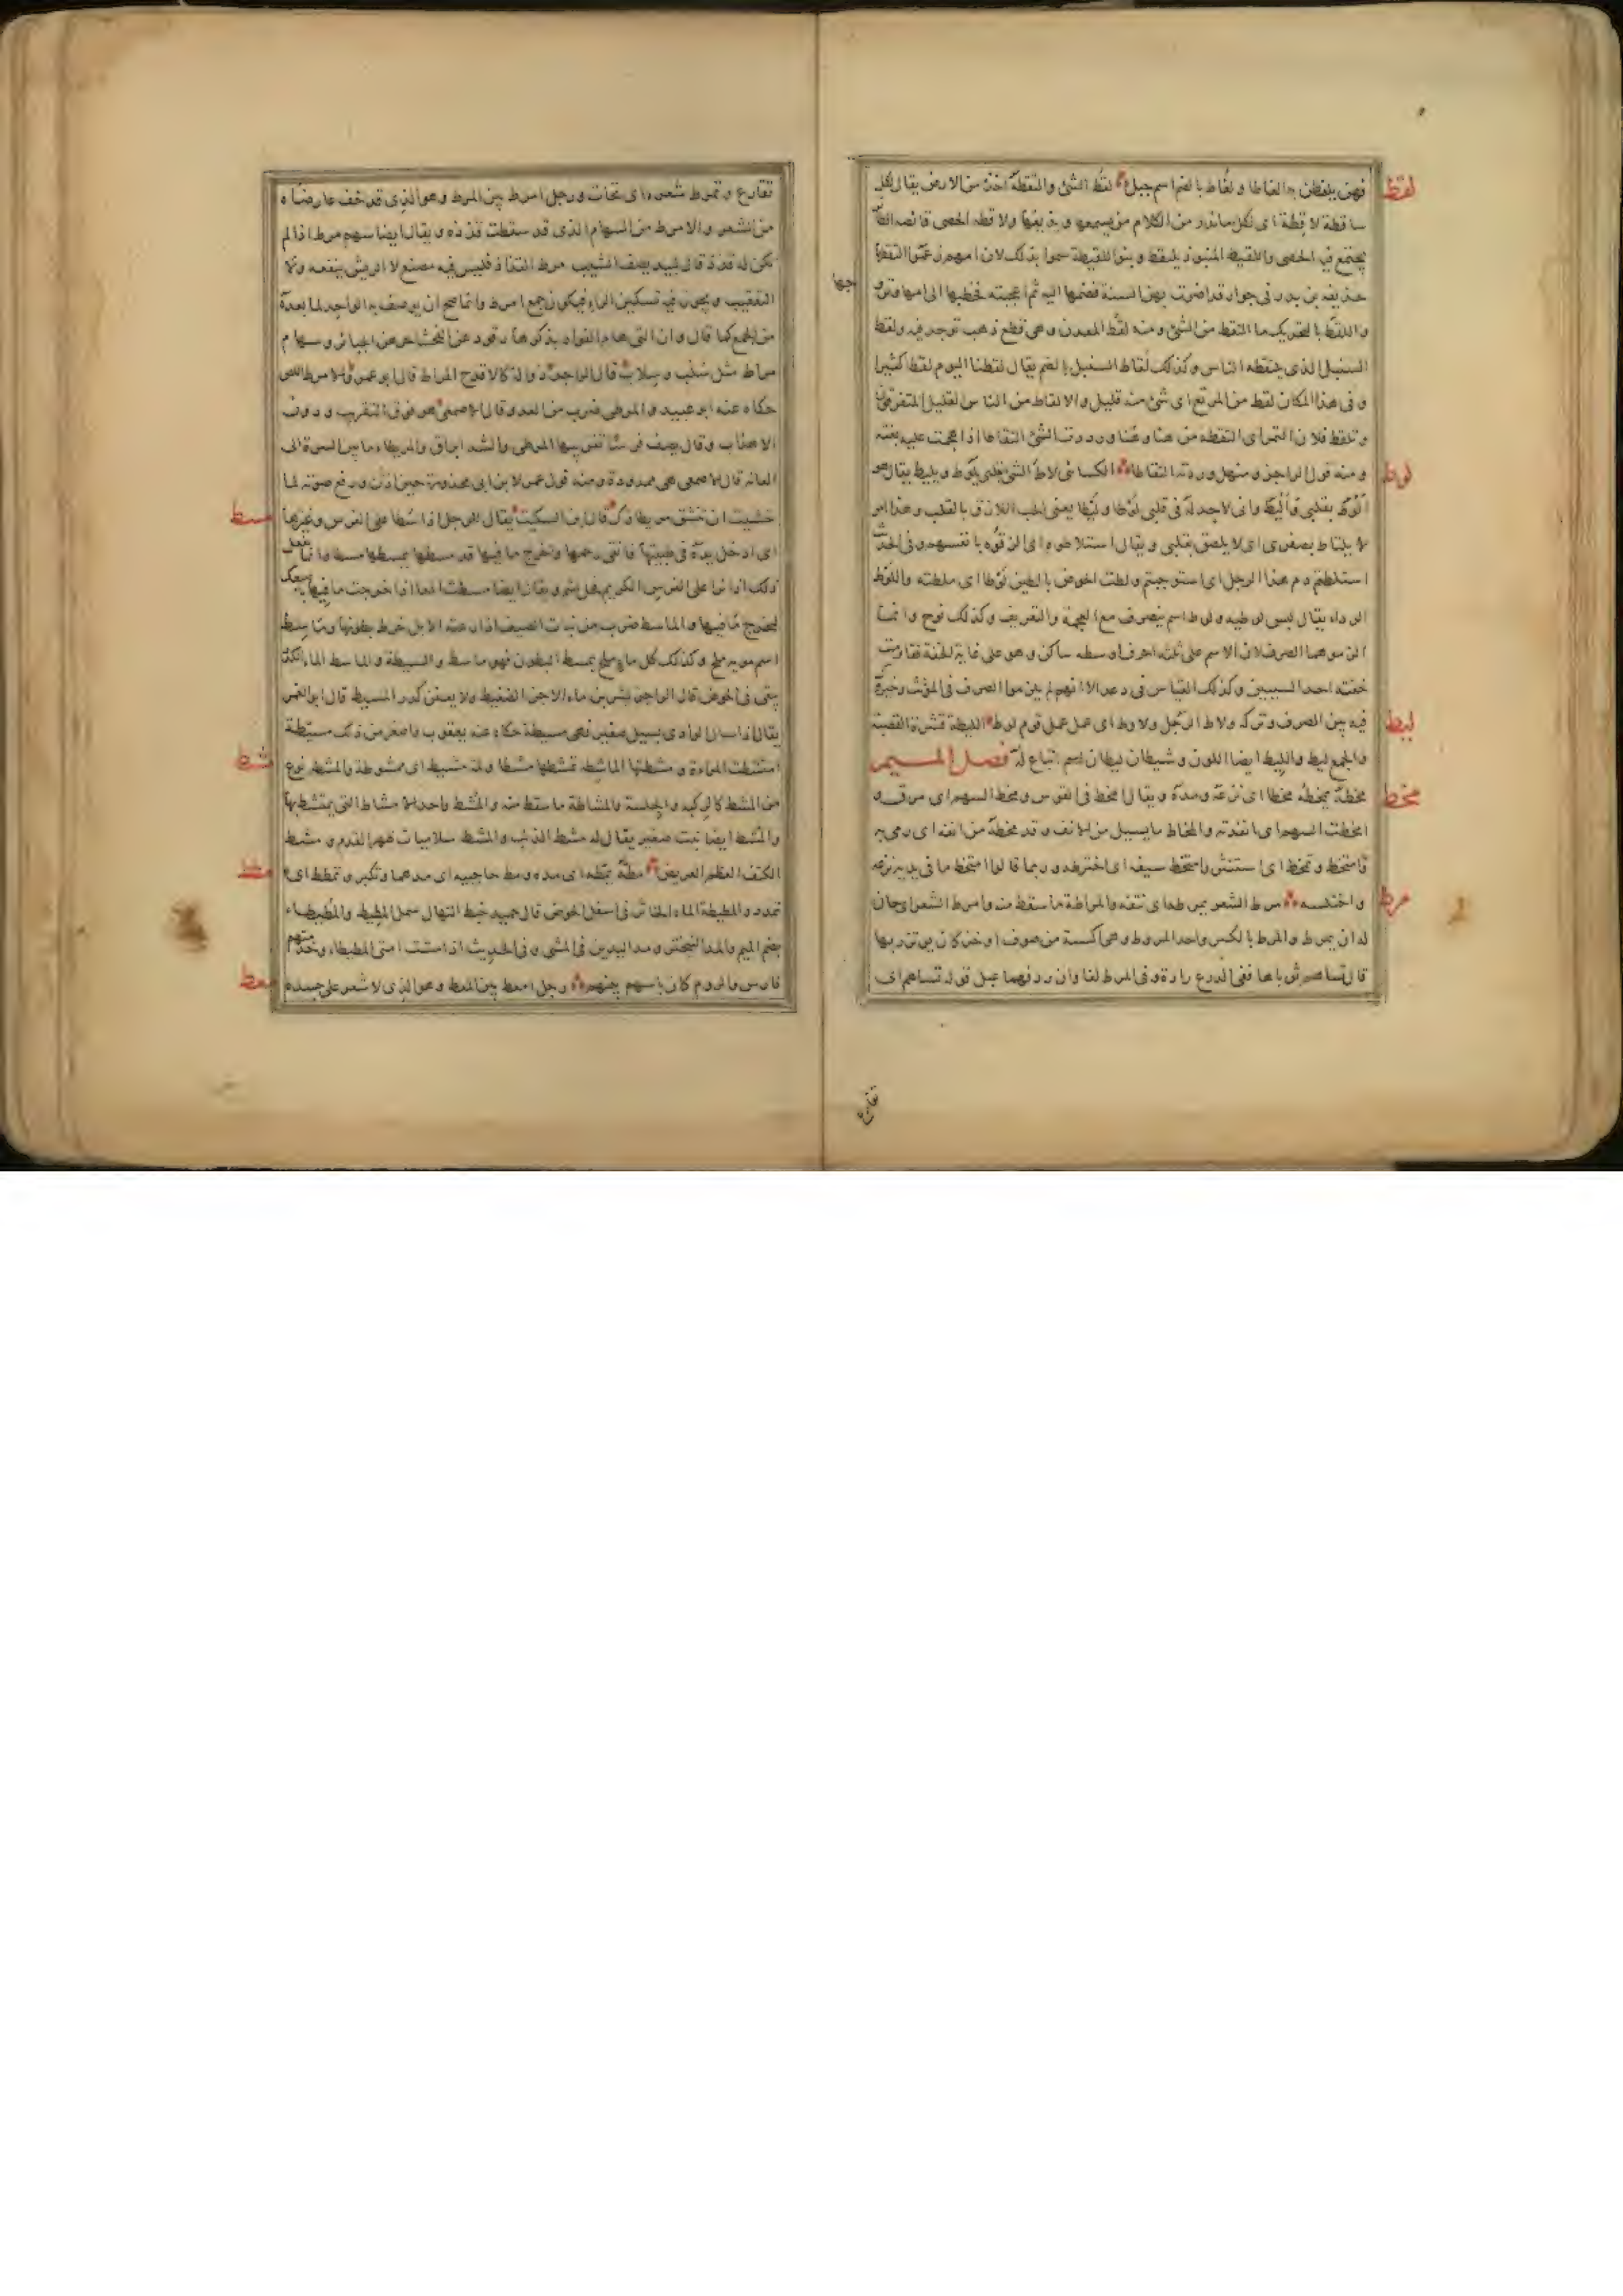 لقط
فهن يلغطن به الغاطا ولغاط بالضم اسم جبل لقط الشئ والتقطه اخذه من الارض يقال لكل
ساقطة لاقطة اى لكل ما ندر من الكلام من يسمعها ويذيعها ولاقطة الحصى قانصة الطير
يجتمع فيها الحصى واللقيط المنبوذ يلتقط وبنو اللقيطة سموا بذلك لان امهم زعموا التقطها
حذيفة بن بدر فى جوار قد اضرت بهن السنة فضمها اليه ثم اعجبته فخطبها الى ابيها وتزو
جها
واللقط بالتحريك ما التقط من الشئ ومنه لقط المعدن وهى قطع ذهب توجد فيه ولقط
السنبل الذى يلتقطه الناس وكذلك لقاط السنبل بالضم يقال لقطنا اليوم لقطا كثيرا
وفى هذا المكان لقط من المرتع اى شئ منه قليل والالقاط من الناس القليل المتفرقون
وتلقط فلان التمر اى التقطه من هنا وهنا ووردت الشئ التقاطا اذا هجمت عليه بغتة
لوط
ومنه قول الراجز ومنهل وردته التقاطا الكسائى لاط الشئ بقلبى يلوط ويليط يقال هو
الوط بقلبى واليط وانى لاجد له فى قلبى لوطا وليطا يعنى الحب اللازق بالقلب وهذا امر
لا يلتاط بصفرى اى لا يلصق بقلبى ويقال استلاطوه اى الزقوه بانفسهم وفى الحديث
استلطتم دم هذا الرجل اى استوجبتم ولطت الحوض بالطين لوطا اى ملطته واللوط
الرداء يقال لبس لوطيه ولوط اسم ينصرف مع العجمة والتعريف وكذلك نوح وانما
الزموهما الصرف لان الاسم على ثلثة احرف اوسطه ساكن وهو على غاية الخفة فقاومت
خفته احد السببين وكذلك القياس فى دعد الا انهم لم يلزموا الصرف فى المؤنث وخيروك
ليط
فيه بين الصرف وتركه ولاط الرجل ولاوط اى عمل عمل قوم لوط الليطة قشرة القصبة
والجمع ليط والليط ايضا اللون وشيطان ليطان اسم اتباع له فصل الميم
مخط
مخطه يمخطه مخطا اى نزعه ومده ويقال امخط فى القوس ومخط السهم اى مرق و
امخطت السهم اى انفذته والمخاط ما يسيل من الانف وقد مخطه من انفه اى رمى به
وامتخط وتمخط اى استنثر وامتخط سيفه اى اخترطه وربما قالوا امتخط ما فى يده نزعه
مرط
واختلسه مرط الشعر يمرطه اى نتفه والمراطة ما سقط منه وامرط الشعر اى حان
له ان يمرط والمرط بالكسر واحد المروط وهى اكسية من صوف او خز كان يؤتزر بها
قال تساهم ثوباها ففى الدرع رادة وفى المرط لفاوان ردفهما عبل قوله تساهم اى
تقارع
تقارع وتمرط شعره اى تحات ورجل امرط بين المرط وهو الذى قد خف عارضاه
من الشعر والامرط من السهام الذى قد سقطت قذذه ويقال ايضا سهم مرط اذا لم
يكن له قذذ قال لبيد يصف الشيب مرط القذاذ فليس فيه مصنع لا الريش ينفعه ولا
التعقيب ويجوز فيه تسكين الراء فيكون جمع امرط وانما صح ان يوصف به الواحد لما بعده
من الجمع كما قال وان التى هام الفواد بذكرها رقود عن الفحشاء خرس الجبائر وسهام
مراط مثل سلب وسلاب قال الراجز ذواله كالاقدح المراط قال ابو عمرو والامرط اللص
حكاه عنه ابو عبيد والمرطى ضرب من العدو قال الاصمعى هو فوق التقريب ودون
الاهذاب وقال يصف فرسا تقريبها المرطى والشد ابراق والمريطاء ما بين السرة الى
العانة قال الاصمعى هى ممدودة ومنه قول عمر لابن ابى محذورة حين اذن ورفع صوته لما
مسط
خشيت ان تنشق مريطاؤك قال ابن السكيت يقال للرجل اذا سطا على الفرس وغيرها
اى ادخل يده فى ظبيتها فانقى رحمها واخرج ما فيها قد مسطها يمسطها مسطا وانما يفعل
ذلك اذا نزا على الفرس الكريم فحل لئيم ويقال ايضا مسطت المعا اذا خرجت ما فيها باصبعك
ليخرج ما فيها والماسط ضرب من نبات الصيف اذا رعته الابل خرط بطونها وماسط
اسم مويه ملح وكذلك كل ماء ملح يمسط البطون فهو ماسط والمسيطة والماسط الماء الكدر
يبقى فى الحوض قال الراجز يشربن ماء الاجن الضغيط ولا يعفن كدر المسيط قال ابو الغمر
يقال اذا سال الوادى بسيل صغير فهى مسيطة حكاه عنه يعقوب واصغر من ذلك مسيطة
مشط
امتشطت المراة ومشطتها الماشطة تمشطها مشطا ولمة مشيط اى ممشوطة والمشط نوع
من المشط كالركبة والجلسة والمشاطة ما سقط منه والمشط واحد الامشاط التى يمتشط بها
والمشط ايضا نبت صغير يقال له مشط الذئب والمشط سلاميات ظهر القدم ومشط
مطط
الكتف العظم العريض مطه يمطه اى مده ومط حاجبيه اى مدهما وتكبر وتمطط اى
تمدد والمطيطة الماء الخاثر فى اسفل الحوض قال حميد خبط النهال سمل المطيط والمطيطاء
بضم الميم والمد التبختر ومد اليدين فى المشى وفى الحديث اذا مشت امتى المطيطاء وخدمتهم
معط
فارس والروم كان باسهم بينهم رجل امعط بين المعط وهو الذى لا شعر على جسده